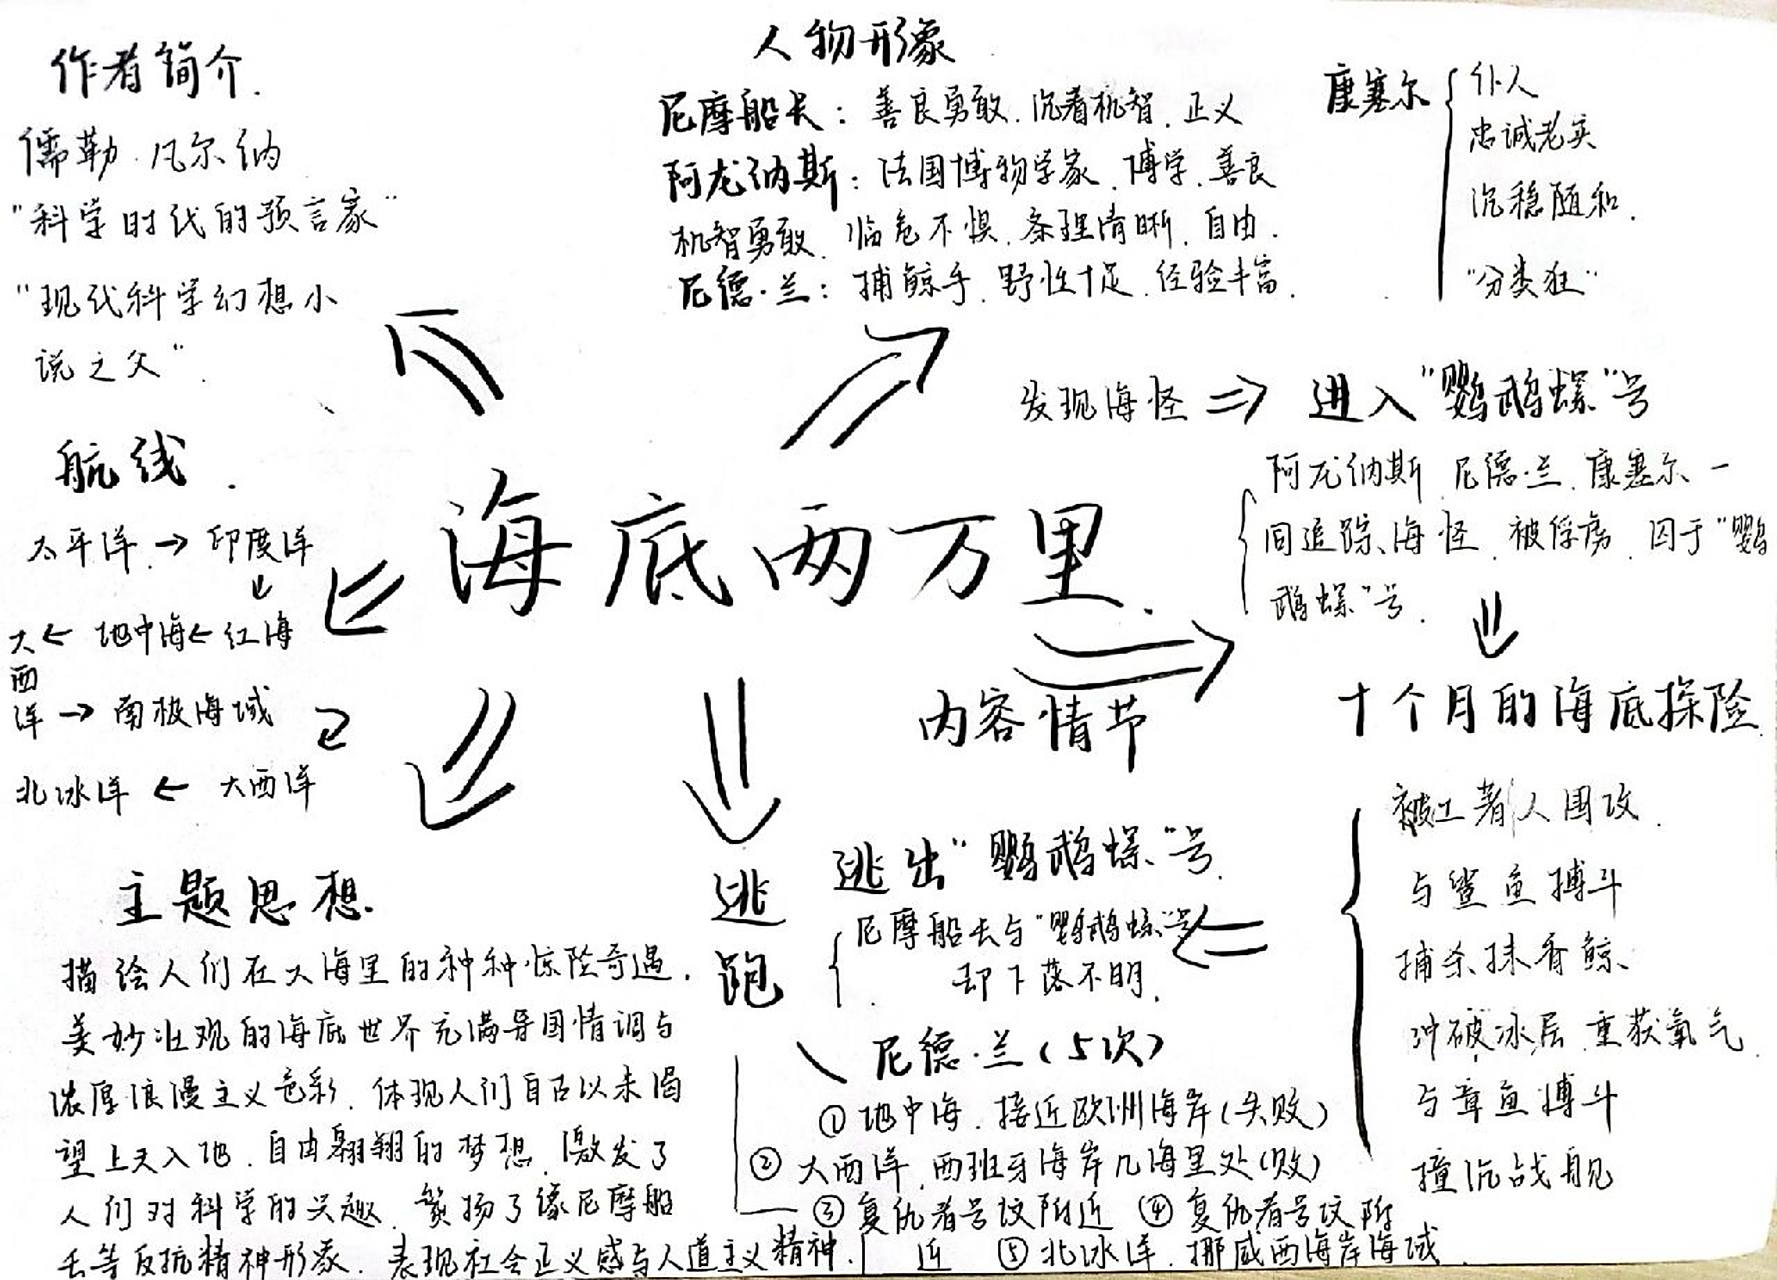 作者简介.
儒勒·凡尔纳
"科学时代的预言家"
"现代科学幻想小
说之父".
人物形象
尼摩船长：善良勇敢、沉着机智、正义
阿龙纳斯：法国博物学家、博学、善良
机智勇敢、临危不惧、条理清晰、自由.
尼德·兰：捕鲸手、野性十足、经验丰富.
康塞尔
仆人
忠诚老实
沉稳随和.
"分类狂"
航线.
太平洋→印度洋
↓
大←地中海←红海
西
洋→南极海域
北冰洋←大西洋
海底两万里.
内容情节
发现海怪⇒进入"鹦鹉螺"号
阿龙纳斯、尼德·兰、康塞尔一
同追踪海怪、被俘虏、囚于"鹦
鹉螺"号.
十个月的海底探险
被土著人围攻.
与鲨鱼搏斗
捕杀抹香鲸
冲破冰层、重获氧气
与章鱼搏斗
撞沉战舰
逃出"鹦鹉螺"号.
尼摩船长与"鹦鹉螺"号
却下落不明.
逃
跑
尼德·兰(5次)
①地中海、接近欧洲海岸(失败)
②大西洋、西班牙海岸几海里处(败)
③复仇者号坟附近 ④复仇者号坟附
近 ⑤北冰洋、挪威西海岸海域
主题思想.
描绘人们在大海里的种种惊险奇遇.
美妙壮观的海底世界充满异国情调与
浓厚浪漫主义色彩、体现人们自古以来渴
望上天入地、自由翱翔的梦想、激发了
人们对科学的兴趣、赞扬了像尼摩船
长等反抗精神形象、表现社会正义感与人道主义精神.